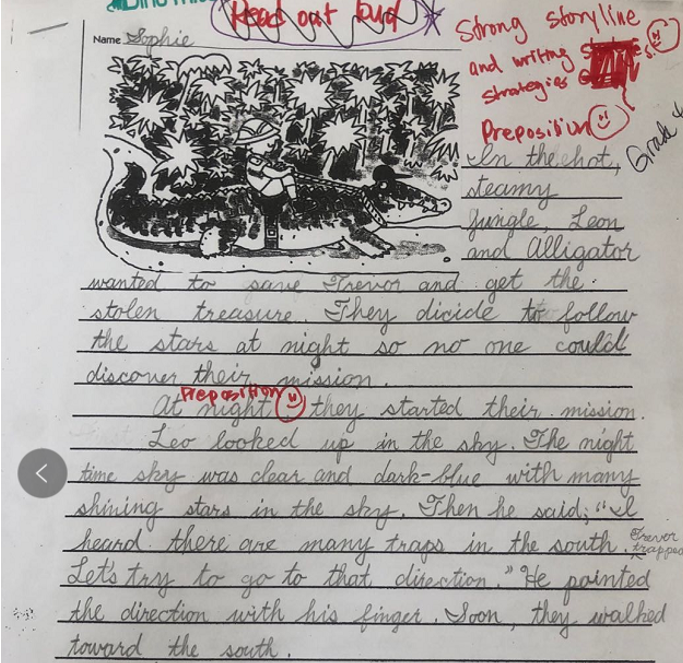 Read out loud
Strong storyline
and writing
strategies
Name Sophie
Preposition
Grade 4
In the hot,
steamy
jungle, Leon
and Alligator
wanted to save Trevor and get the
stolen treasure. They dicide to follow
the stars at night so no one could
discover their mission.
Preposition
At night, they started their mission.
Leo looked up in the sky. The night
time sky was clear and dark-blue with many
shining stars in the sky. Then he said; "I
heard there are many traps in the south.
Trevor
trapped
Let's try to go to that direction." He pointed
the direction with his finger. Soon, they walked
toward the south.